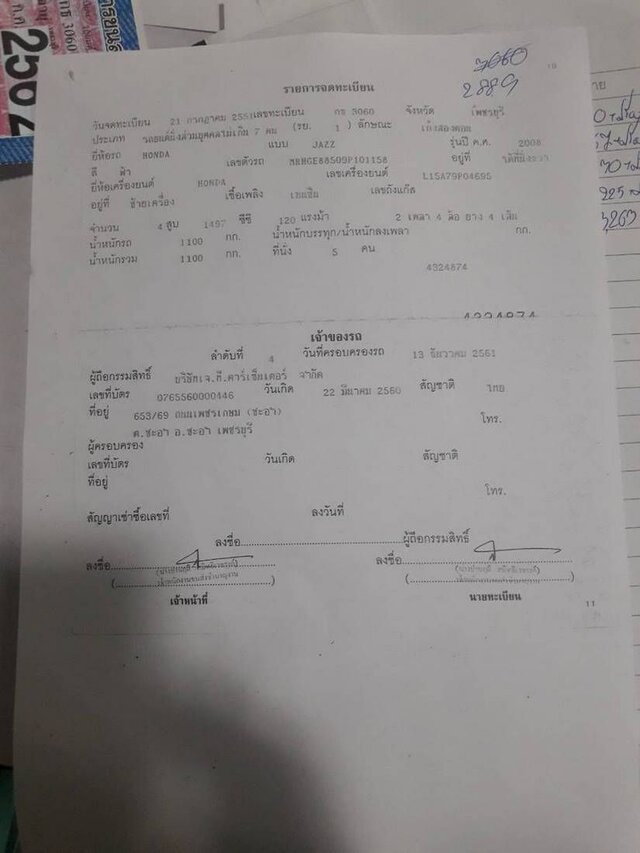 3060
2889
10
รายการจดทะเบียน
วันจดทะเบียน 21 กรกฎาคม 2551 เลขทะเบียน กธ 3060 จังหวัด เพชรบุรี
ประเภท รถยนต์นั่งส่วนบุคคลไม่เกิน 7 คน (รย. 1 ) ลักษณะ เก๋งสองตอน
ยี่ห้อรถ HONDA แบบ JAZZ รุ่นปี ค.ศ. 2008
สี ฟ้า เลขตัวรถ MRHGE88509P101158 อยู่ที่
ยี่ห้อเครื่องยนต์ HONDA เลขเครื่องยนต์ L15A79P04695
อยู่ที่ ซ้ายเครื่อง เชื้อเพลิง เบนซิน เลขถังแก๊ส
จำนวน 4 สูบ 1497 ซีซี 120 แรงม้า 2 เพลา 4 ล้อ ยาง 4 เส้น
น้ำหนักรถ 1100 กก. น้ำหนักบรรทุก/น้ำหนักลงเพลา กก.
น้ำหนักรวม 1100 กก. ที่นั่ง 5 คน
4324874
4324874
เจ้าของรถ
ลำดับที่ 4 วันที่ครอบครองรถ 13 ธันวาคม 2561
ผู้ถือกรรมสิทธิ์ บริษัทเจ.ที.คาร์เซ็นเตอร์ จำกัด
เลขที่บัตร 0765560000446 วันเกิด 22 มีนาคม 2560 สัญชาติ ไทย
ที่อยู่ 653/69 ถนนเพชรเกษม (ชะอำ) โทร.
ต.ชะอำ อ.ชะอำ เพชรบุรี
ผู้ครอบครอง
เลขที่บัตร วันเกิด สัญชาติ
ที่อยู่
โทร.
สัญญาเช่าซื้อเลขที่ ลงวันที่
ลงชื่อ ผู้ถือกรรมสิทธิ์
ลงชื่อ ลงชื่อ
เจ้าหน้าที่ นายทะเบียน
11